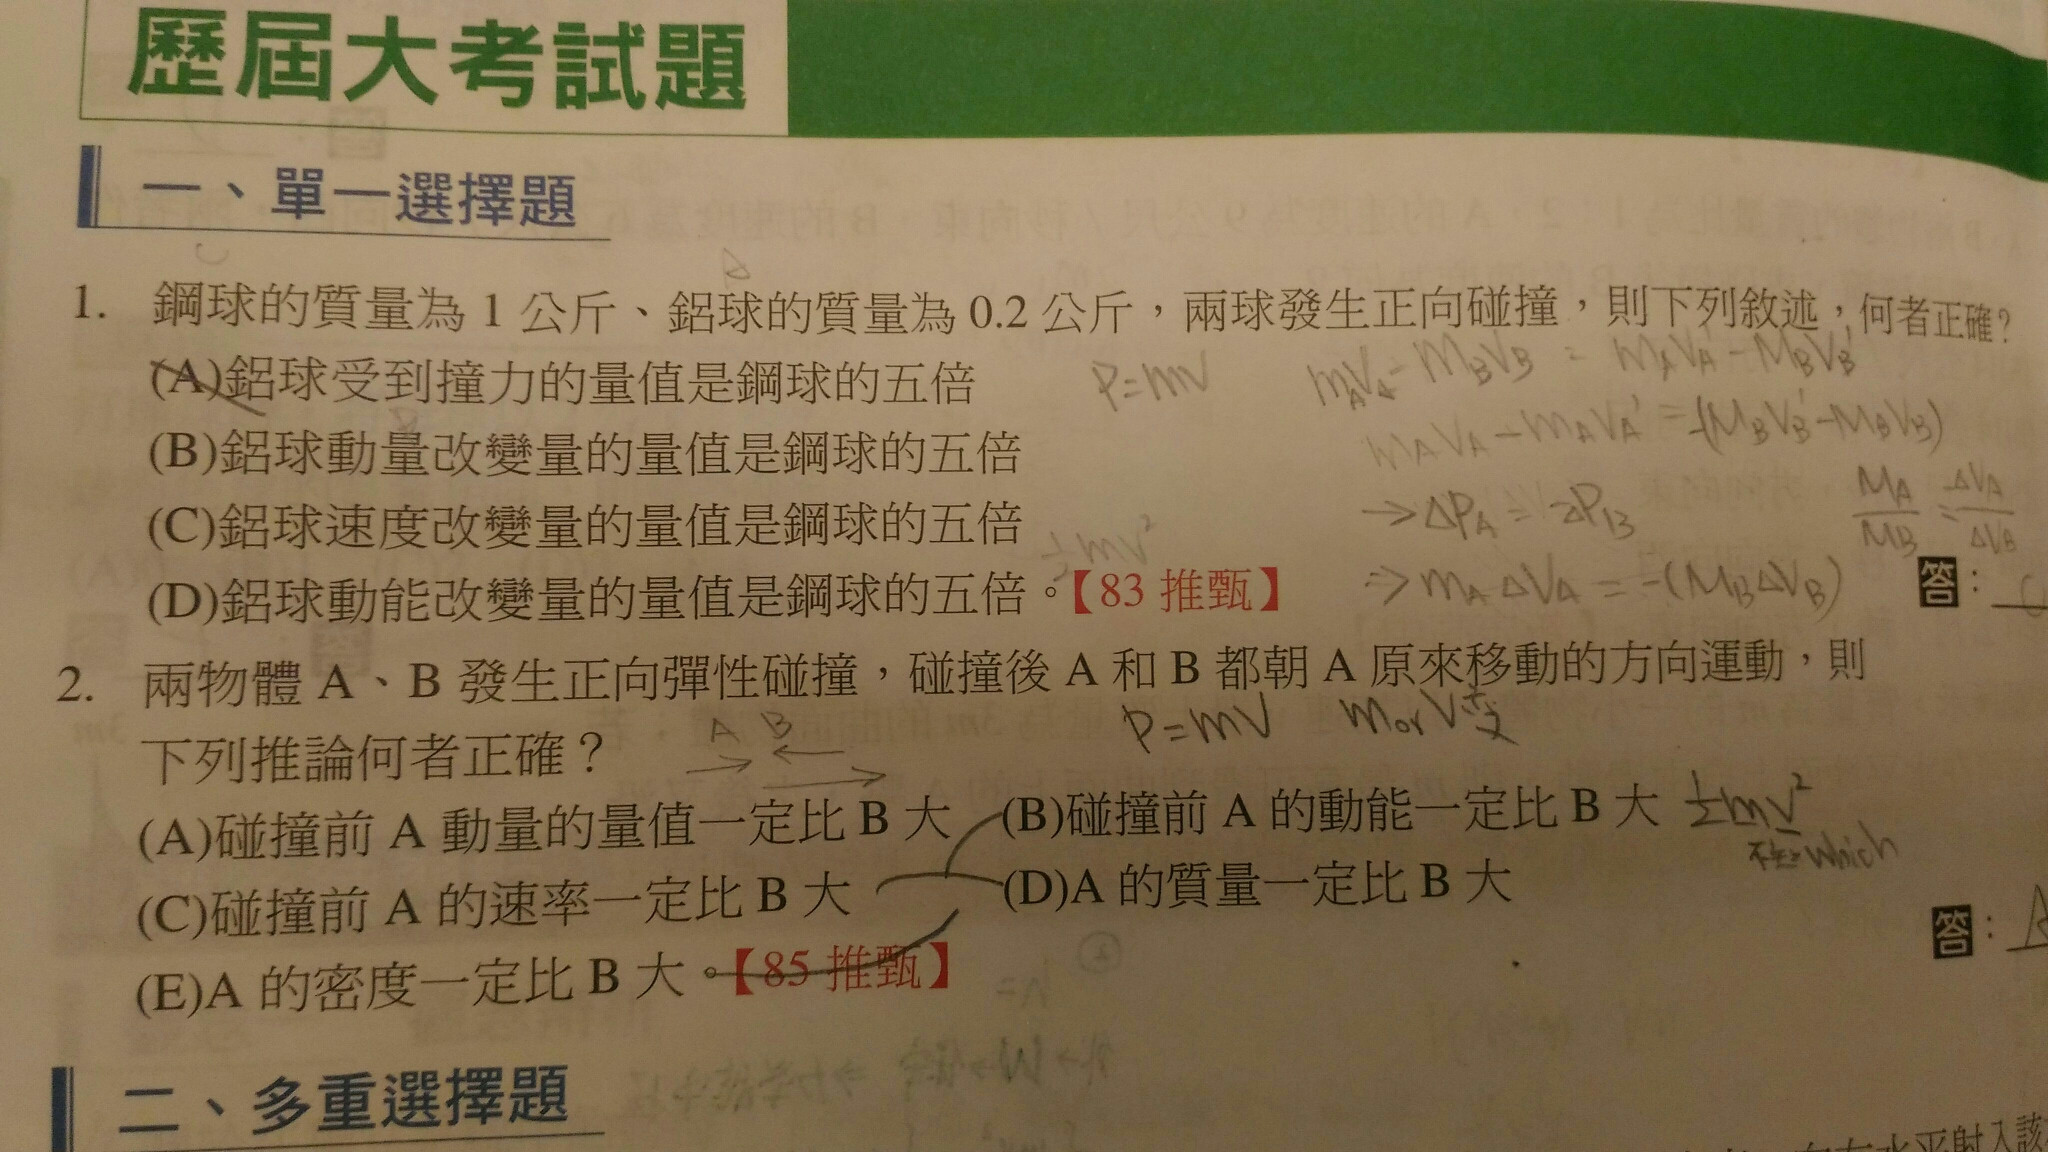 歷屆大考試題
一、單一選擇題
1. 鋼球的質量為 1 公斤、鋁球的質量為 0.2 公斤，兩球發生正向碰撞，則下列敘述，何者正確?
(A)鋁球受到撞力的量值是鋼球的五倍
P=mV
(B)鋁球動量改變量的量值是鋼球的五倍
(C)鋁球速度改變量的量值是鋼球的五倍
(D)鋁球動能改變量的量值是鋼球的五倍。【83 推甄】
½mv²
答：C
2. 兩物體 A、B 發生正向彈性碰撞，碰撞後 A 和 B 都朝 A 原來移動的方向運動，則
下列推論何者正確？
A B
P=mV m or V 变
(A)碰撞前 A 動量的量值一定比 B 大 (B)碰撞前 A 的動能一定比 B 大
½mv²
which
(C)碰撞前 A 的速率一定比 B 大 (D)A 的質量一定比 B 大
答：A
(E)A 的密度一定比 B 大。【85 推甄】
二、多重選擇題
水平射入該